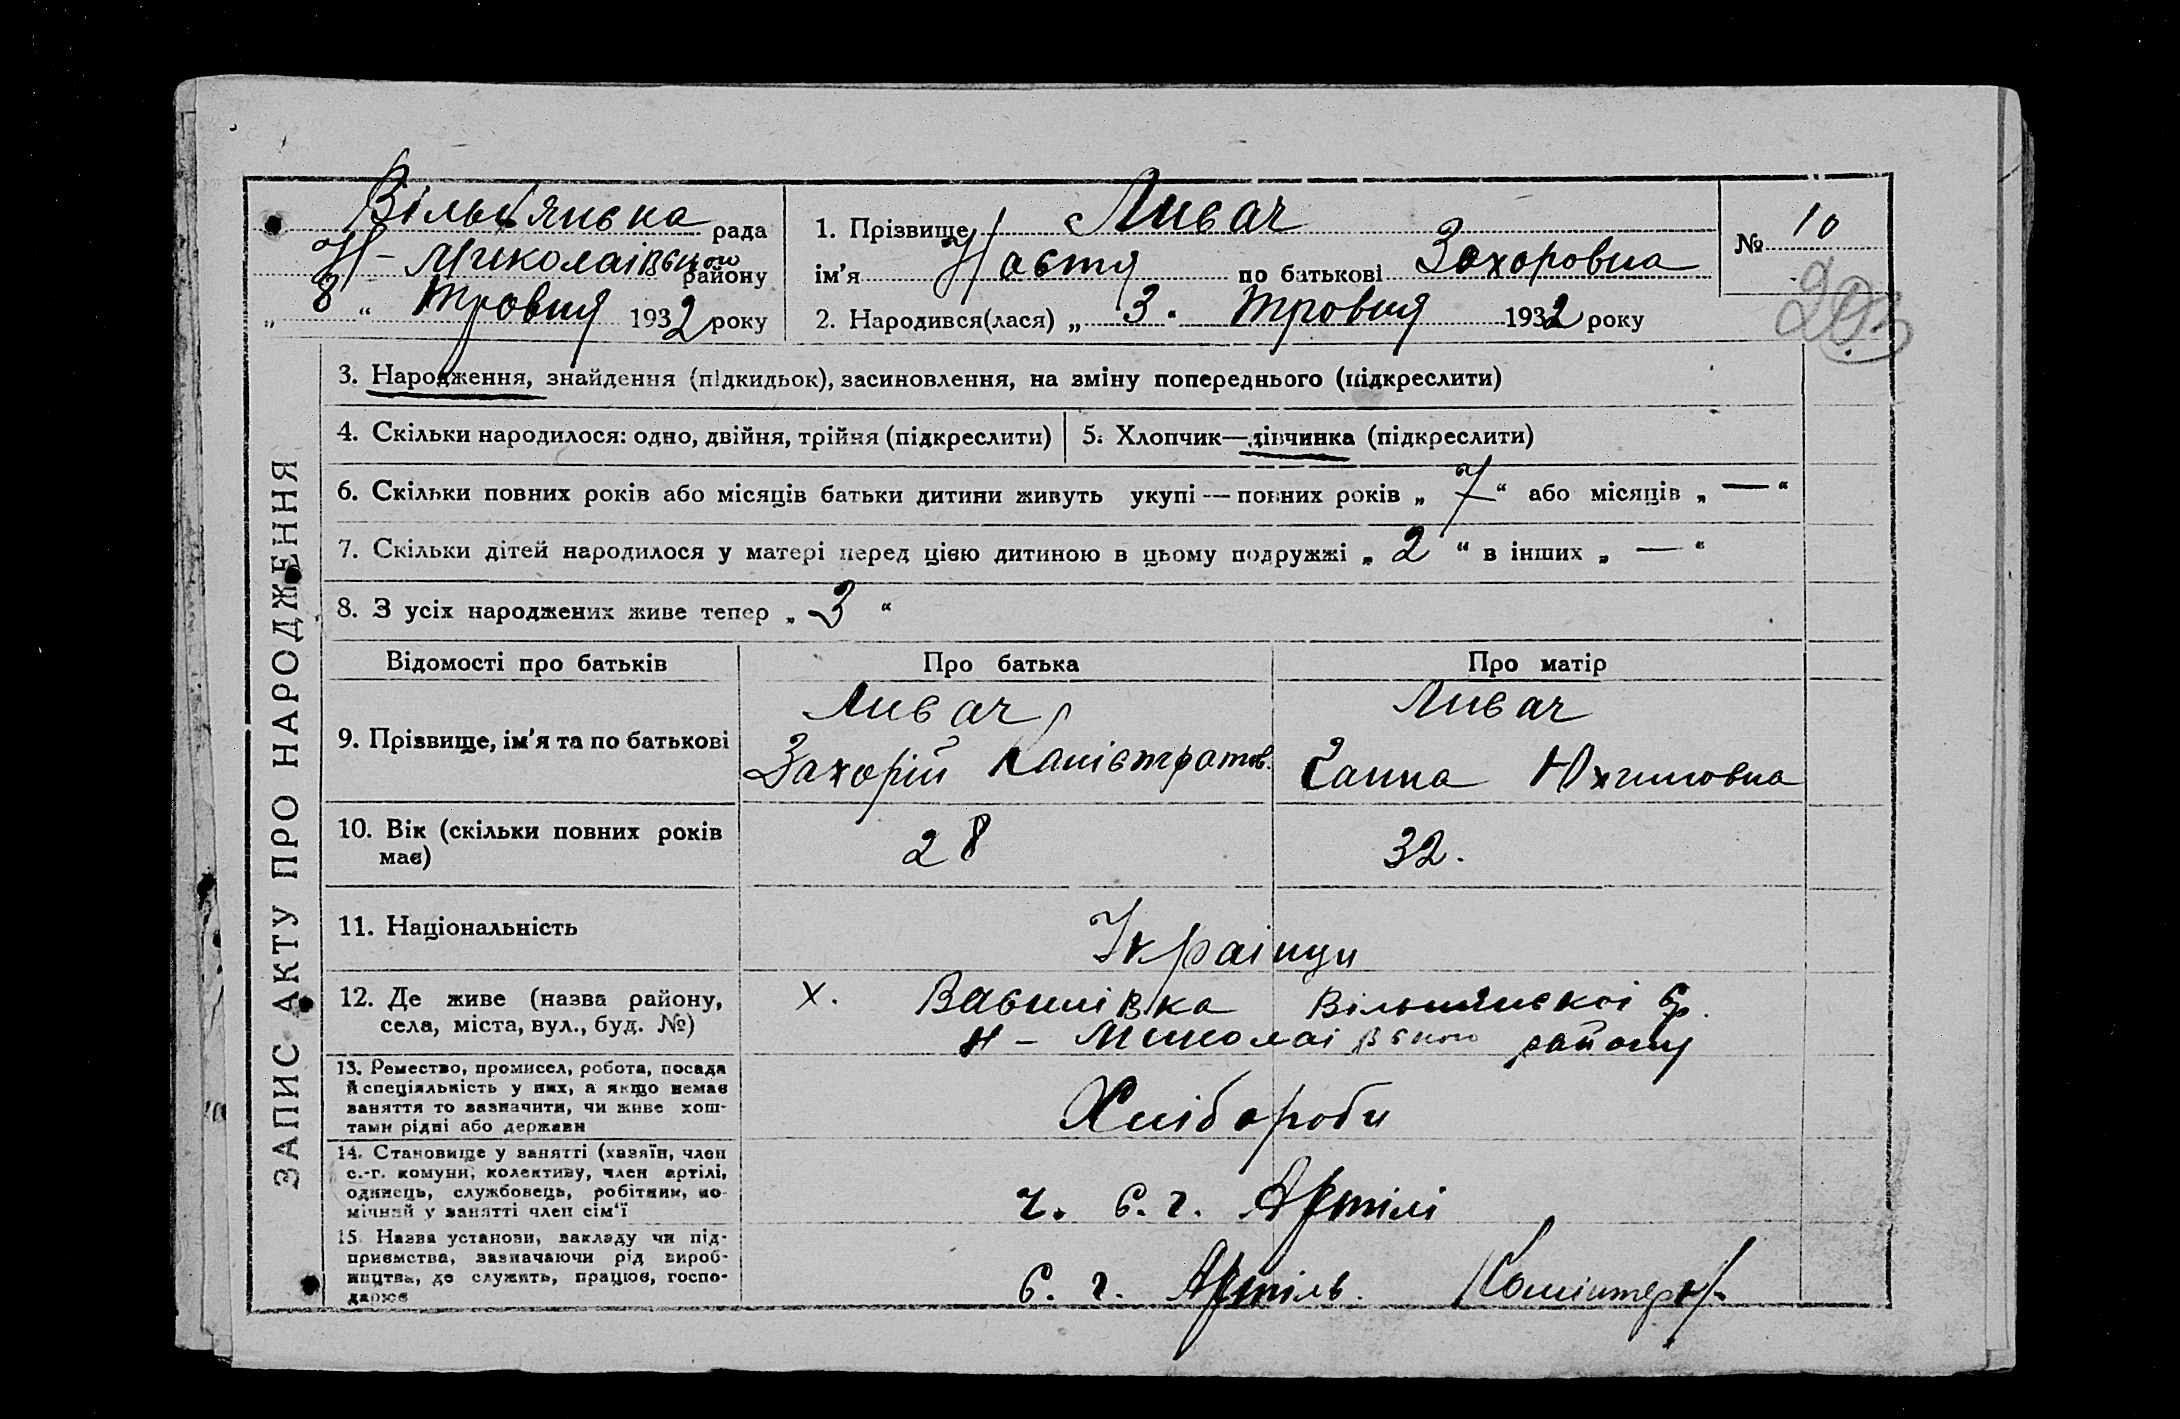 Вільнянська рада
Н-Миколаівського району
„ 8 “ травня 1932 року
1. Прізвище Ливач
ім’я Настя по батькові Захоровна
№ 10
2. Народився(лася) „ 3 “ травня 1932 року
ЗАПИС АКТУ ПРО НАРОДЖЕННЯ
3. Народження, знайдення (підкидьок), засиновлення, на зміну попереднього (підкреслити)
4. Скільки народилося: одно, двійня, трійня (підкреслити) 5. Хлопчик—дівчинка (підкреслити)
6. Скільки повних років або місяців батьки дитини живуть укупі — повних років „ 7 “ або місяців „ — “
7. Скільки дітей народилося у матері перед цією дитиною в цьому подружжі „ 2 “ в інших „ — “
8. З усіх народжених живе тепер „ 3 “
Відомості про батьків Про батька Про матір
9. Прізвище, ім’я та по батькові
Ливач
Захорій Каністратов.
Ливач
Ганна Юхимовна
10. Вік (скільки повних років
має)
28
32.
11. Національність
Украінци
12. Де живе (назва району,
села, міста, вул., буд. №)
х. Василівка Вільнянскоі ср.
Н-Миколаівського району
13. Ремество, промисел, робота, посада
й спеціяльність у них, а якщо немає
заняття то зазначити, чи живе кош-
тами рідні або держави
Хлібороби
14. Становище у занятті (хазяїн, член
с.-г. комуни, колективу, член артілі,
одинець, службовець, робітник, по-
мічний у занятті член сім’ї
ч. с. г. Артілі
15. Назва установи, закладу чи під-
приємства, зазначаючи рід вироб-
ництва, де служить, працює, госпо-
дарює
с. г. Артіль. Комінтерн